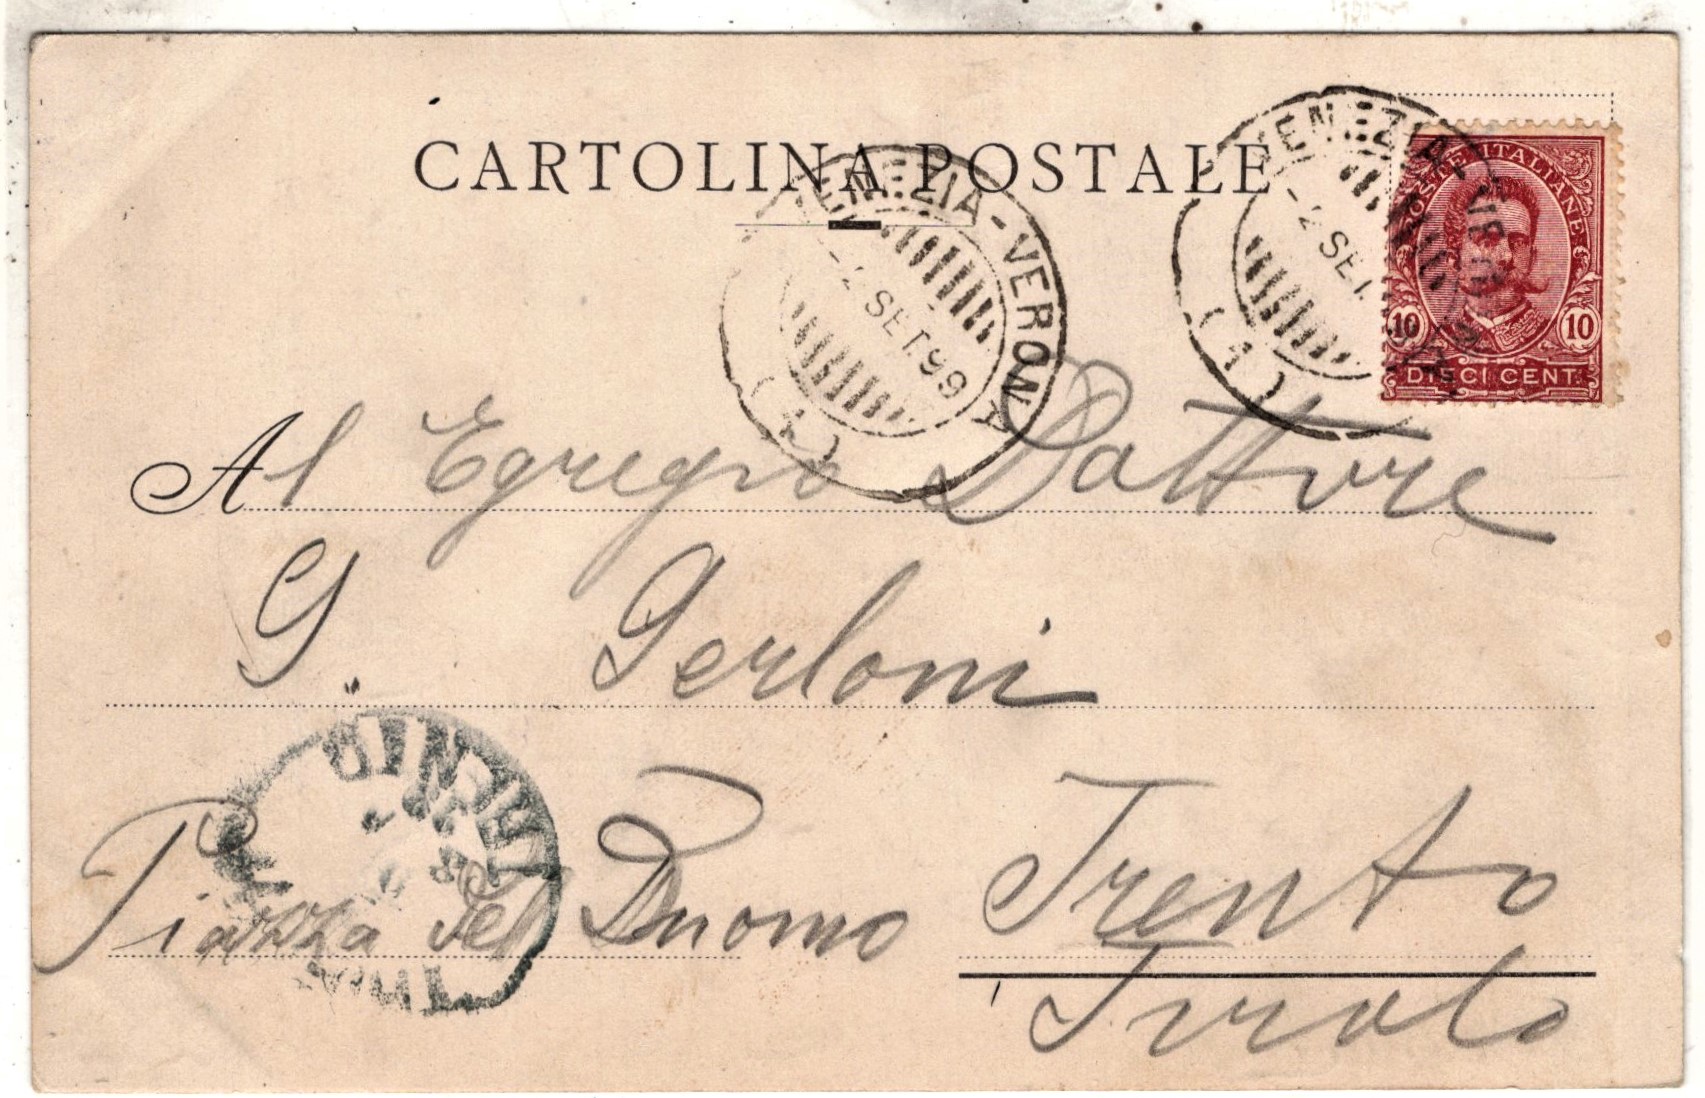 CARTOLINA POSTALE
VENEZIA-VERONA
-2 SET.99
(1)
VENEZIA
-2 SET.
(1)
POSTE ITALIANE
10 10
DIECI CENT.
Al Egregio Dottore
G. Gerloni
Piazza del Duomo Trento
Tirolo
TRIENT